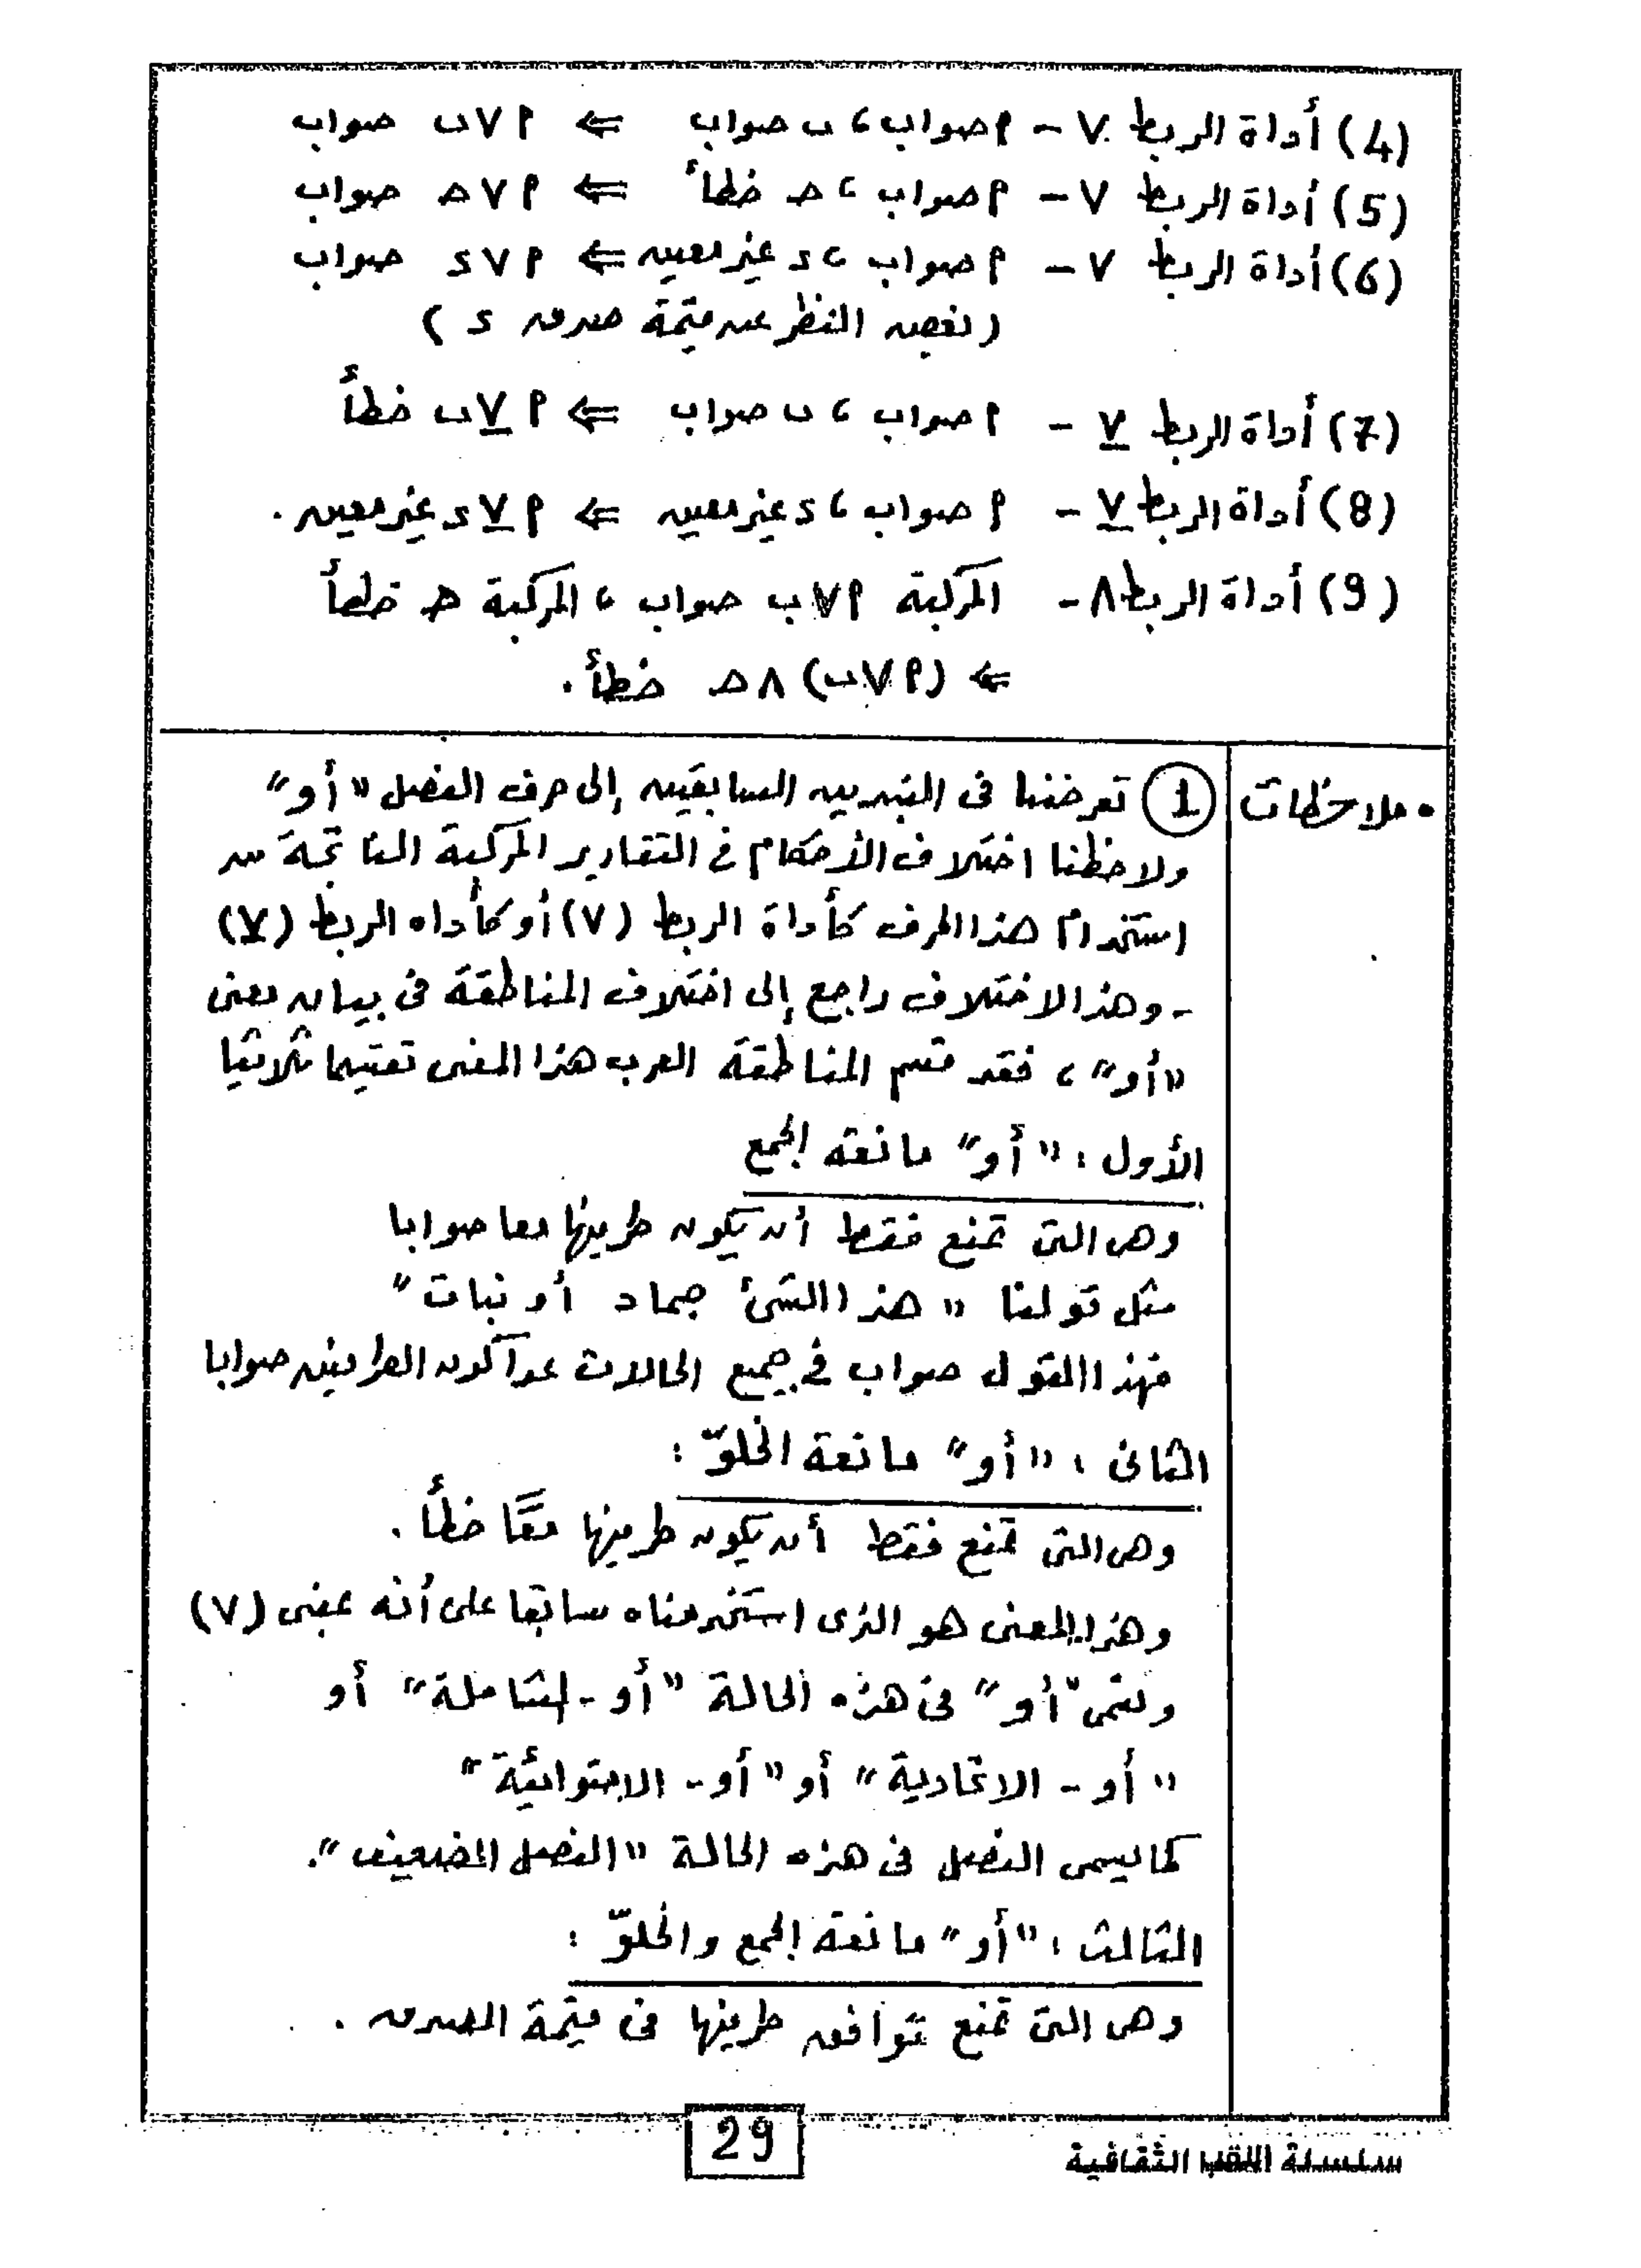 (4) أداة الربط ∨ - م صواب ، ب صواب ⇐ م ∨ ب صواب
(5) أداة الربط ∨ - م صواب ، حـ خطأ ⇐ م ∨ حـ صواب
(6) أداة الربط ∨ - م صواب ، s غير معين ⇐ م ∨ s صواب
(بغض النظر عن قيمة صدق s)
(7) أداة الربط ⊻ - م صواب ، ب صواب ⇐ م ⊻ ب خطأ
(8) أداة الربط ⊻ - م صواب ، s غير معين ⇐ م ⊻ s غير معين .
(9) أداة الربط ∧ - المركبة م ∨ ب صواب ، المركبة حـ خطأ
⇐ (م ∨ ب) ∧ حـ خطأ .
• ملاحظات
(1) تعرضنا فى البندين السابقين إلى حرف الفصل "أو"
ولاحظنا اختلاف الأحكام في التقارير المركبة الناتجة من
استخدام هذا الحرف كأداة الربط (∨) أو كأداه الربط (⊻)
- وهذا الاختلاف راجع إلى اختلاف المناطقة فى بيان معنى
"أو" ، فقد قسم المناطقة العرب هذا المعنى تقسيما ثلاثيا
الأول : "أو" مانعة الجمع
وهى التى تمنع فقط أن يكون طرفيها معا صوابا
مثل قولنا "هذا الشئ جماد أو نبات"
فهذا القول صواب في جميع الحالات عدا كون الطرفين صوابا
الثانى : "أو" مانعة الخلوّ :
وهى التى تمنع فقط أن يكون طرفيها معًا خطأ .
وهذا المعنى هو الذى استخدمناه سابقا على أنه يعنى (∨)
وتسمى "أو" فى هذه الحالة "أو - الشاملة" أو
"أو - الاتحادية" أو "أو - الاحتوائية"
كما يسمى الفصل فى هذه الحالة "الفصل الضعيف".
الثالث : "أو" مانعة الجمع والخلوّ :
وهى التى تمنع توافق طرفيها فى قيمة الصدق .
29
سلسلة الثقافية